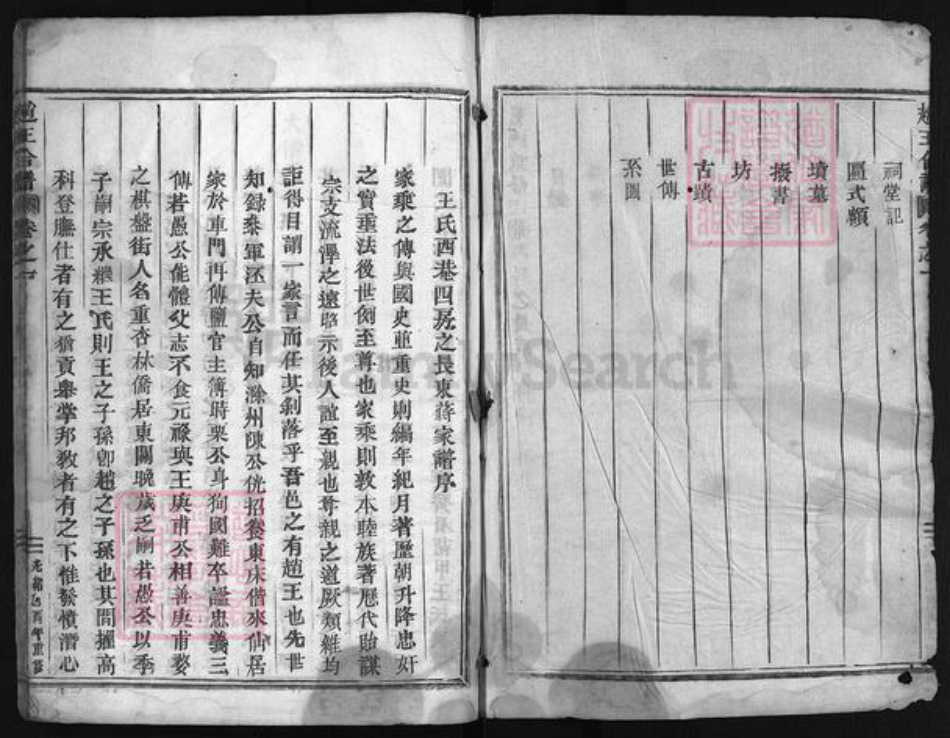 祠堂記
匾式類
墳墓
撥書
坊
古蹟
世傳
系圖
王氏西巷四房之長東蔣家譜序
家乘之傳與國史並重史則編年紀月著歷朝升降忠奸
之實重法後世例至尊也家乘則敦本睦族著歷代貽謀
宗支流澤之遠昭示後人誼至親也尊親之道厥類維均
詎得目謂一家言而任其剝落乎吾邑之有趙王也先世
知錄叅軍 夫公自知滁州陳公 招養東床偕來仙居
家於車門再傳鹽官主簿時栗公身狥國難卒謚忠義三
傳若愚公能體父志不食元祿與王庚甫公相善庚甫婺
之棋盤街人名重杏林僑居東關晚歲乏嗣若愚公以季
子嗣宗承繼王氏則王之子孫卽趙之子孫也其間擢高
科登膴仕者有之猶貢舉掌邦敎者有之不惟發憤潛心
趙王合譜 卷之一
光緒 酉年重
FamilySearch